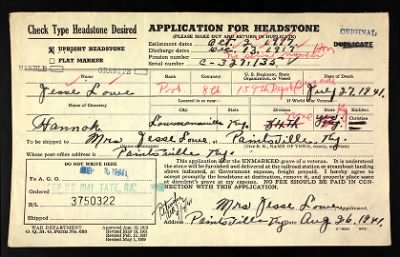 Check Type Headstone Desired
APPLICATION FOR HEADSTONE
(PLEASE MAKE OUT AND RETURN IN DUPLICATE)
ORIGINAL
DUPLICATE
UPRIGHT HEADSTONE
FLAT MARKER
MARBLE
GRANITE
Enlistment dates Oct. 3, 1917
Discharge dates Dec. 13, 1917 Hon
Pension number
C-327,135
Name
Rank
Company
U. S. Regiment, State Organization, or Vessel
Date of Death
Jesse Lowe
Pvt.
8th
159th Depot Brigade
July 27, 1941.
Name of Cemetery
Located in or Near
If World War Veteran
Hannah
Lowmansville Ky.
To be shipped to Mrs Jesse Lowe, at Paintsville, Ky.
Whose post office address is Paintsville, Ky.
DO NOT WRITE HERE
To A. G. O.
1941
B/L
3750322
Ordered
Shipped
This application is for the UNMARKED grave of a veteran. It is understood
the stone will be furnished and delivered at the railroad station or steamboat landing
above indicated, at Government expense, freight prepaid. I hereby agree to
promptly accept the headstone at destination, remove it, and properly place same
at decedent's grave at my expense. NO FEE SHOULD BE PAID IN
CONNECTION WITH THIS APPLICATION.
Mrs Jesse Lowe
Paintsville, Ky Aug 26, 1941.
WAR DEPARTMENT
O. Q. M. G. Form No. 623